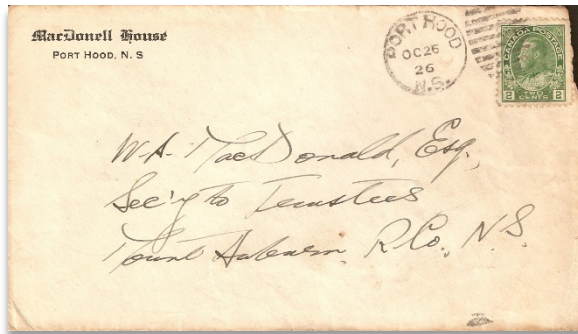 MacDonell House
PORT HOOD, N. S
PORT HOOD
OC 26
26
N.S.
CANADA POSTAGE
2 TWO CENTS 2
W. A. MacDonald, Esq.,
Sec'y to Trustees
Mount Auburn, R. Co., N.S.